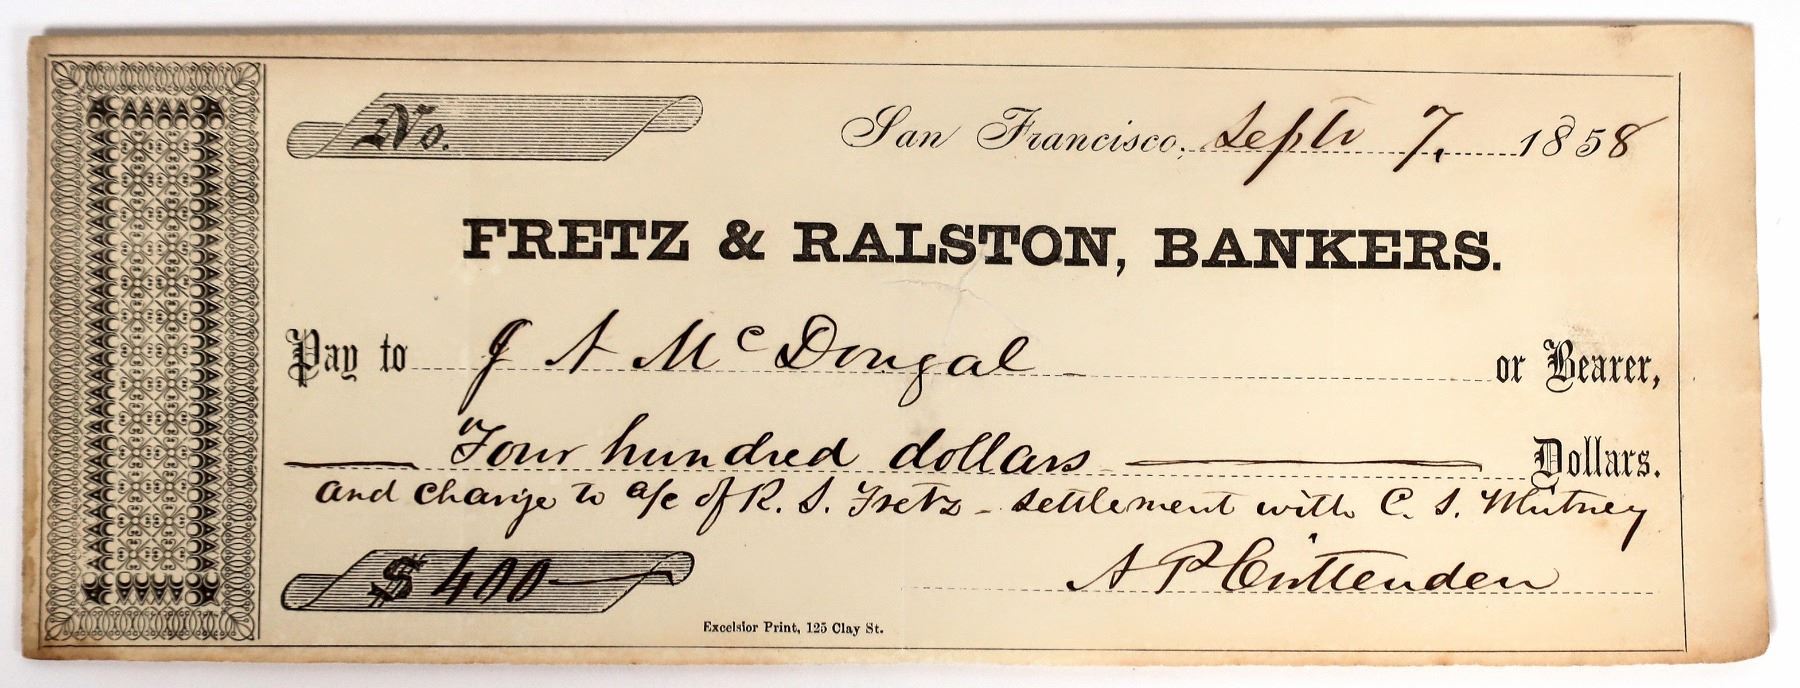 No.
San Francisco, Septr 7, 1858
FRETZ & RALSTON, BANKERS.
Pay to J A McDougal or Bearer,
Four hundred dollars Dollars.
and charge to a/c of R. S. Fretz - settlement with C. S. Whitney
$ 400
A P Crittenden
Excelsior Print, 125 Clay St.